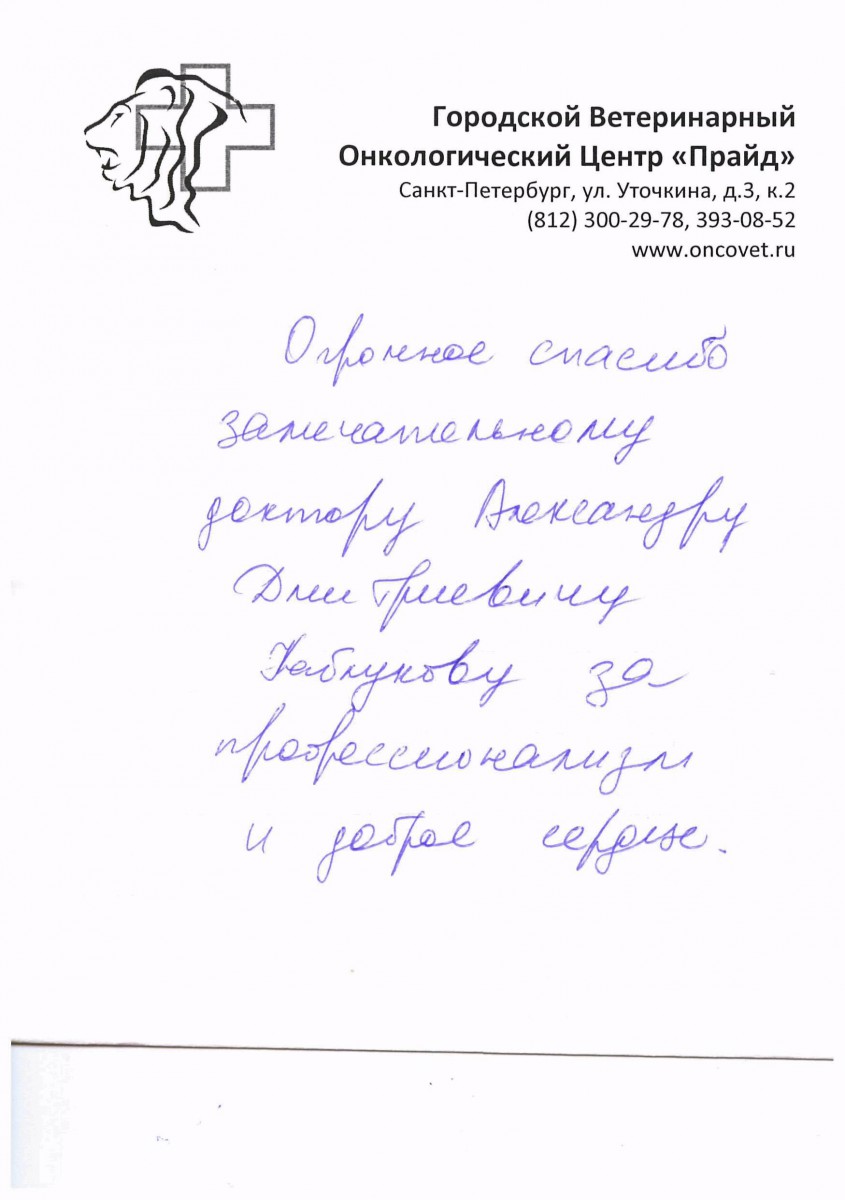 Городской Ветеринарный
Онкологический Центр «Прайд»
Санкт-Петербург, ул. Уточкина, д.3, к.2
(812) 300-29-78, 393-08-52
www.oncovet.ru
Огромное спасибо
замечательному
доктору Александру
Дмитриевичу
Каблукову за
профессионализм
и доброе сердце.